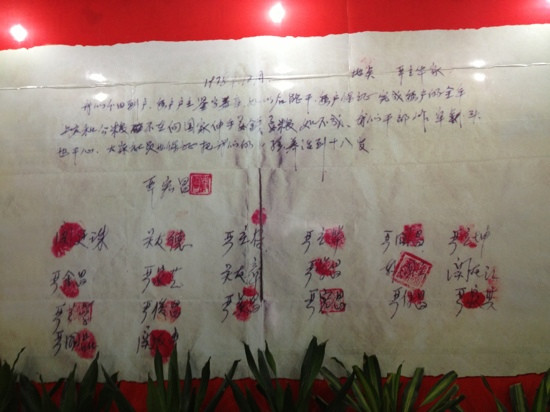 1978年12月. 地点 严立华家
我们分田到户,每户户主签字盖章,如以后能干,每户保证完成每户的全年
上交和公粮.不在向国家伸手要钱要粮,如不成,我们干部作牢刹头
也干心,大家社员也保证把我们的小孩养活到十八岁
严宏昌
珠 关友德 严立 严立 严国昌 严立坤
严金昌 严 芝 关友章 严 昌 关友江
严立 严俊昌 严 昌 严 昌 严 昌 严
严国